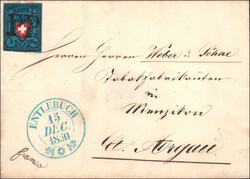 Herren Herren Weber & Söhne
Tabakfabrikanten
in
Menzikon
Ct. Aargau.
ENTLEBUCH
15
DEC.
1850
franco